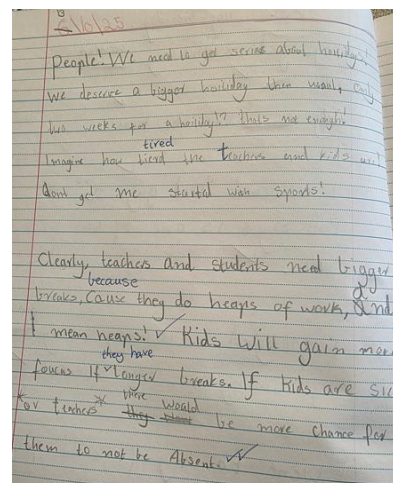 6/10/25
People! We need to get serius about hoilidys!
We deserve a bigger hoiliday then usual, only
two weeks for a hoilidy!? thats not enough!
tired
Imagine how tierd the teachers and kids are!
Dont get me startd with sports!
Clearly, teachers and students need bigger
because
breaks, Cause they do heaps of work, And
I mean heaps! Kids will gain more
they have
foucus If longer breaks. If kids are sic
there would
*or teachers* they be more chance for
them to not be Absent.